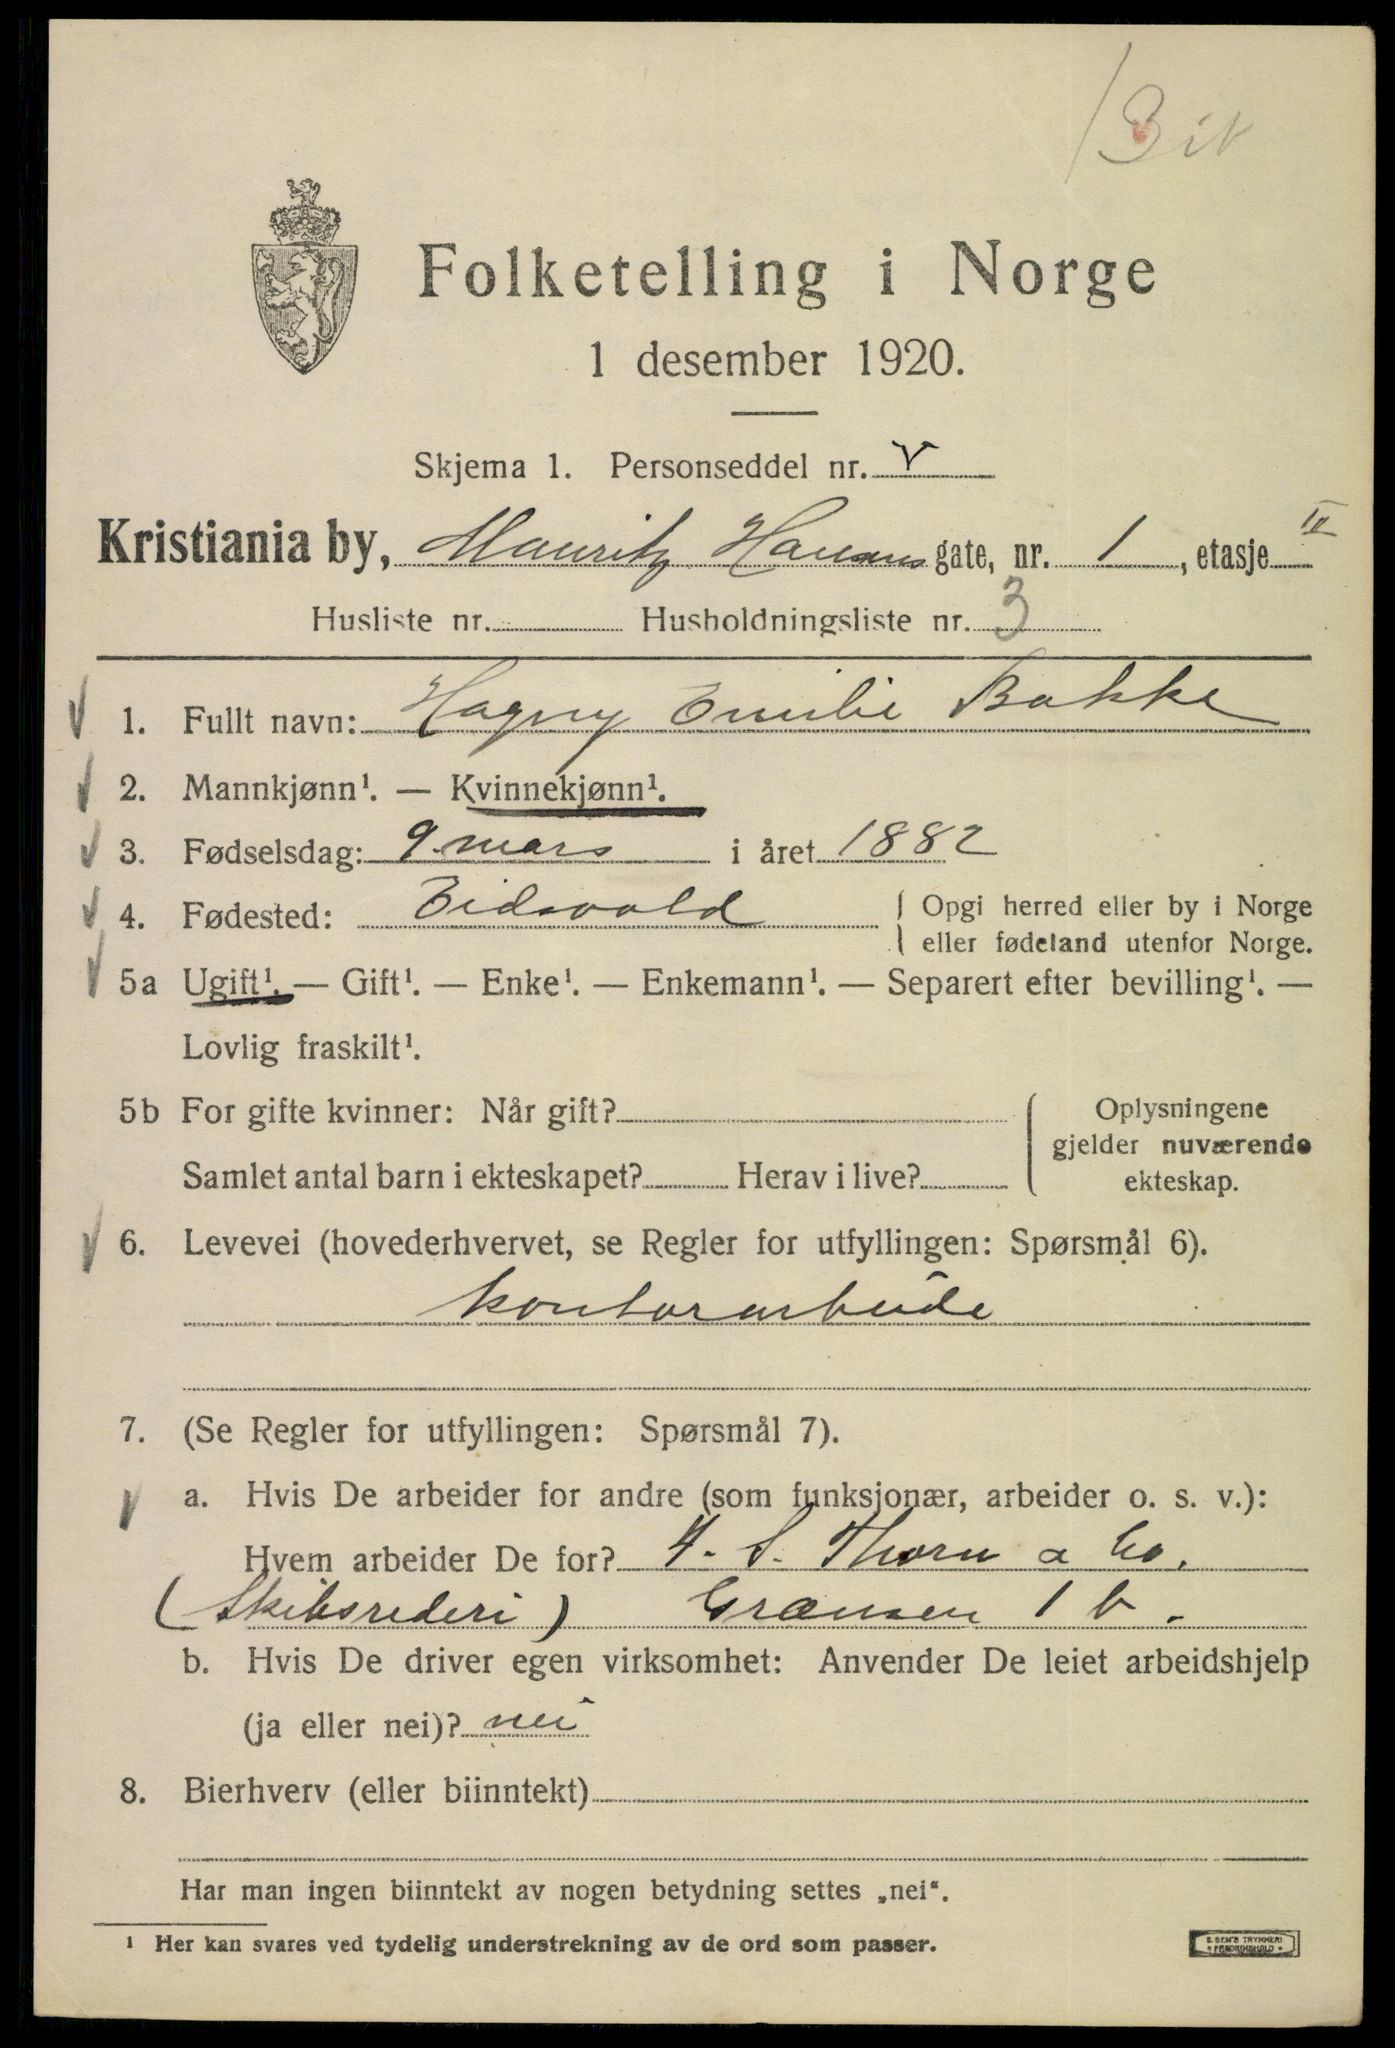 Folketelling i Norge
1 desember 1920.
Skjema 1. Personseddel nr. V
Kristiania by, Mauritz Hansens gate, nr. 1, etasje II
Husliste nr. Husholdningsliste nr. 3
1. Fullt navn: Hagny Emilie Bakke
2. Mannkjønn¹. — Kvinnekjønn¹.
3. Fødselsdag: 9. mars i året 1882
4. Fødested: Eidsvold { Opgi herred eller by i Norge
eller fødeland utenfor Norge.
5a Ugift¹. — Gift¹. — Enke¹. — Enkemann¹. — Separert efter bevilling¹. —
Lovlig fraskilt¹.
5b For gifte kvinner: Når gift? { Oplysningene
gjelder nuværende
Samlet antal barn i ekteskapet? Herav i live? ekteskap.
6. Levevei (hovederhvervet, se Regler for utfyllingen: Spørsmål 6).
kontorarbeide
7. (Se Regler for utfyllingen: Spørsmål 7).
a. Hvis De arbeider for andre (som funksjonær, arbeider o. s. v.):
Hvem arbeider De for? S. Thorn & Co.
(Skibsrederi) Grænsen 1 b.
b. Hvis De driver egen virksomhet: Anvender De leiet arbeidshjelp
(ja eller nei)? nei
8. Bierhverv (eller biinntekt)
Har man ingen biinntekt av nogen betydning settes „nei“.
¹ Her kan svares ved tydelig understrekning av de ord som passer.
E. SEM'S TRYKKERI
• FREDRIKSHALD •